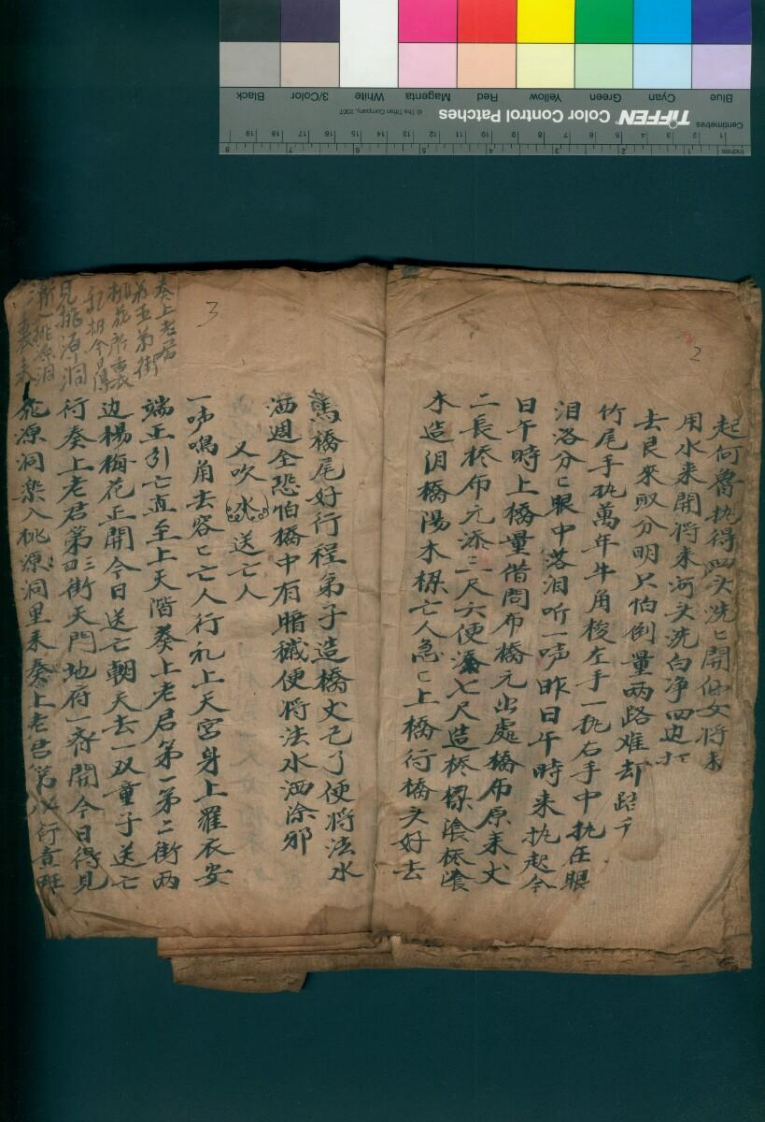 Blue
Cyan
Green
Yellow
Red
Magenta
White
3/Color
Black
TIFFEN Color Control Patches
© The Tiffen Company, 2007
Centimetres
Inches
2
起何魯执得四头洗〻開仙女将来
用水来開将来河头洗白净四边
去良来取分明只怕倒量两路难却
竹尾手执萬年牛角梭左手一执右手中执在眼
泪洛分〻眼中落泪听一声昨日午時来执起今
日午時上橋量借問布橋元出處橋布原来丈
二長桥布元添三尺六便添七尺造桥樑陰桥陰
木造阴橋陽木樑亡人急〻上橋行橋头好去
3
橋尾好行程弟子造橋丈已了便将法水
洒週全恐怕橋中有暗槭便将法水洒涂邪
又吹水送亡人
一声鳴角去容〻亡人行礼上天宫身上羅衣安
端正引亡直至上天階奏上老君第一第二街两
边楊梅花正開今日送亡朝天去一双童子送亡
行奏上老君第三四街天門地府一齊開今日得見
花源洞樂入桃源洞里来奏上老君第八行
奏上老君
第五第街
桃花
今日得
見桃源洞
桃源洞